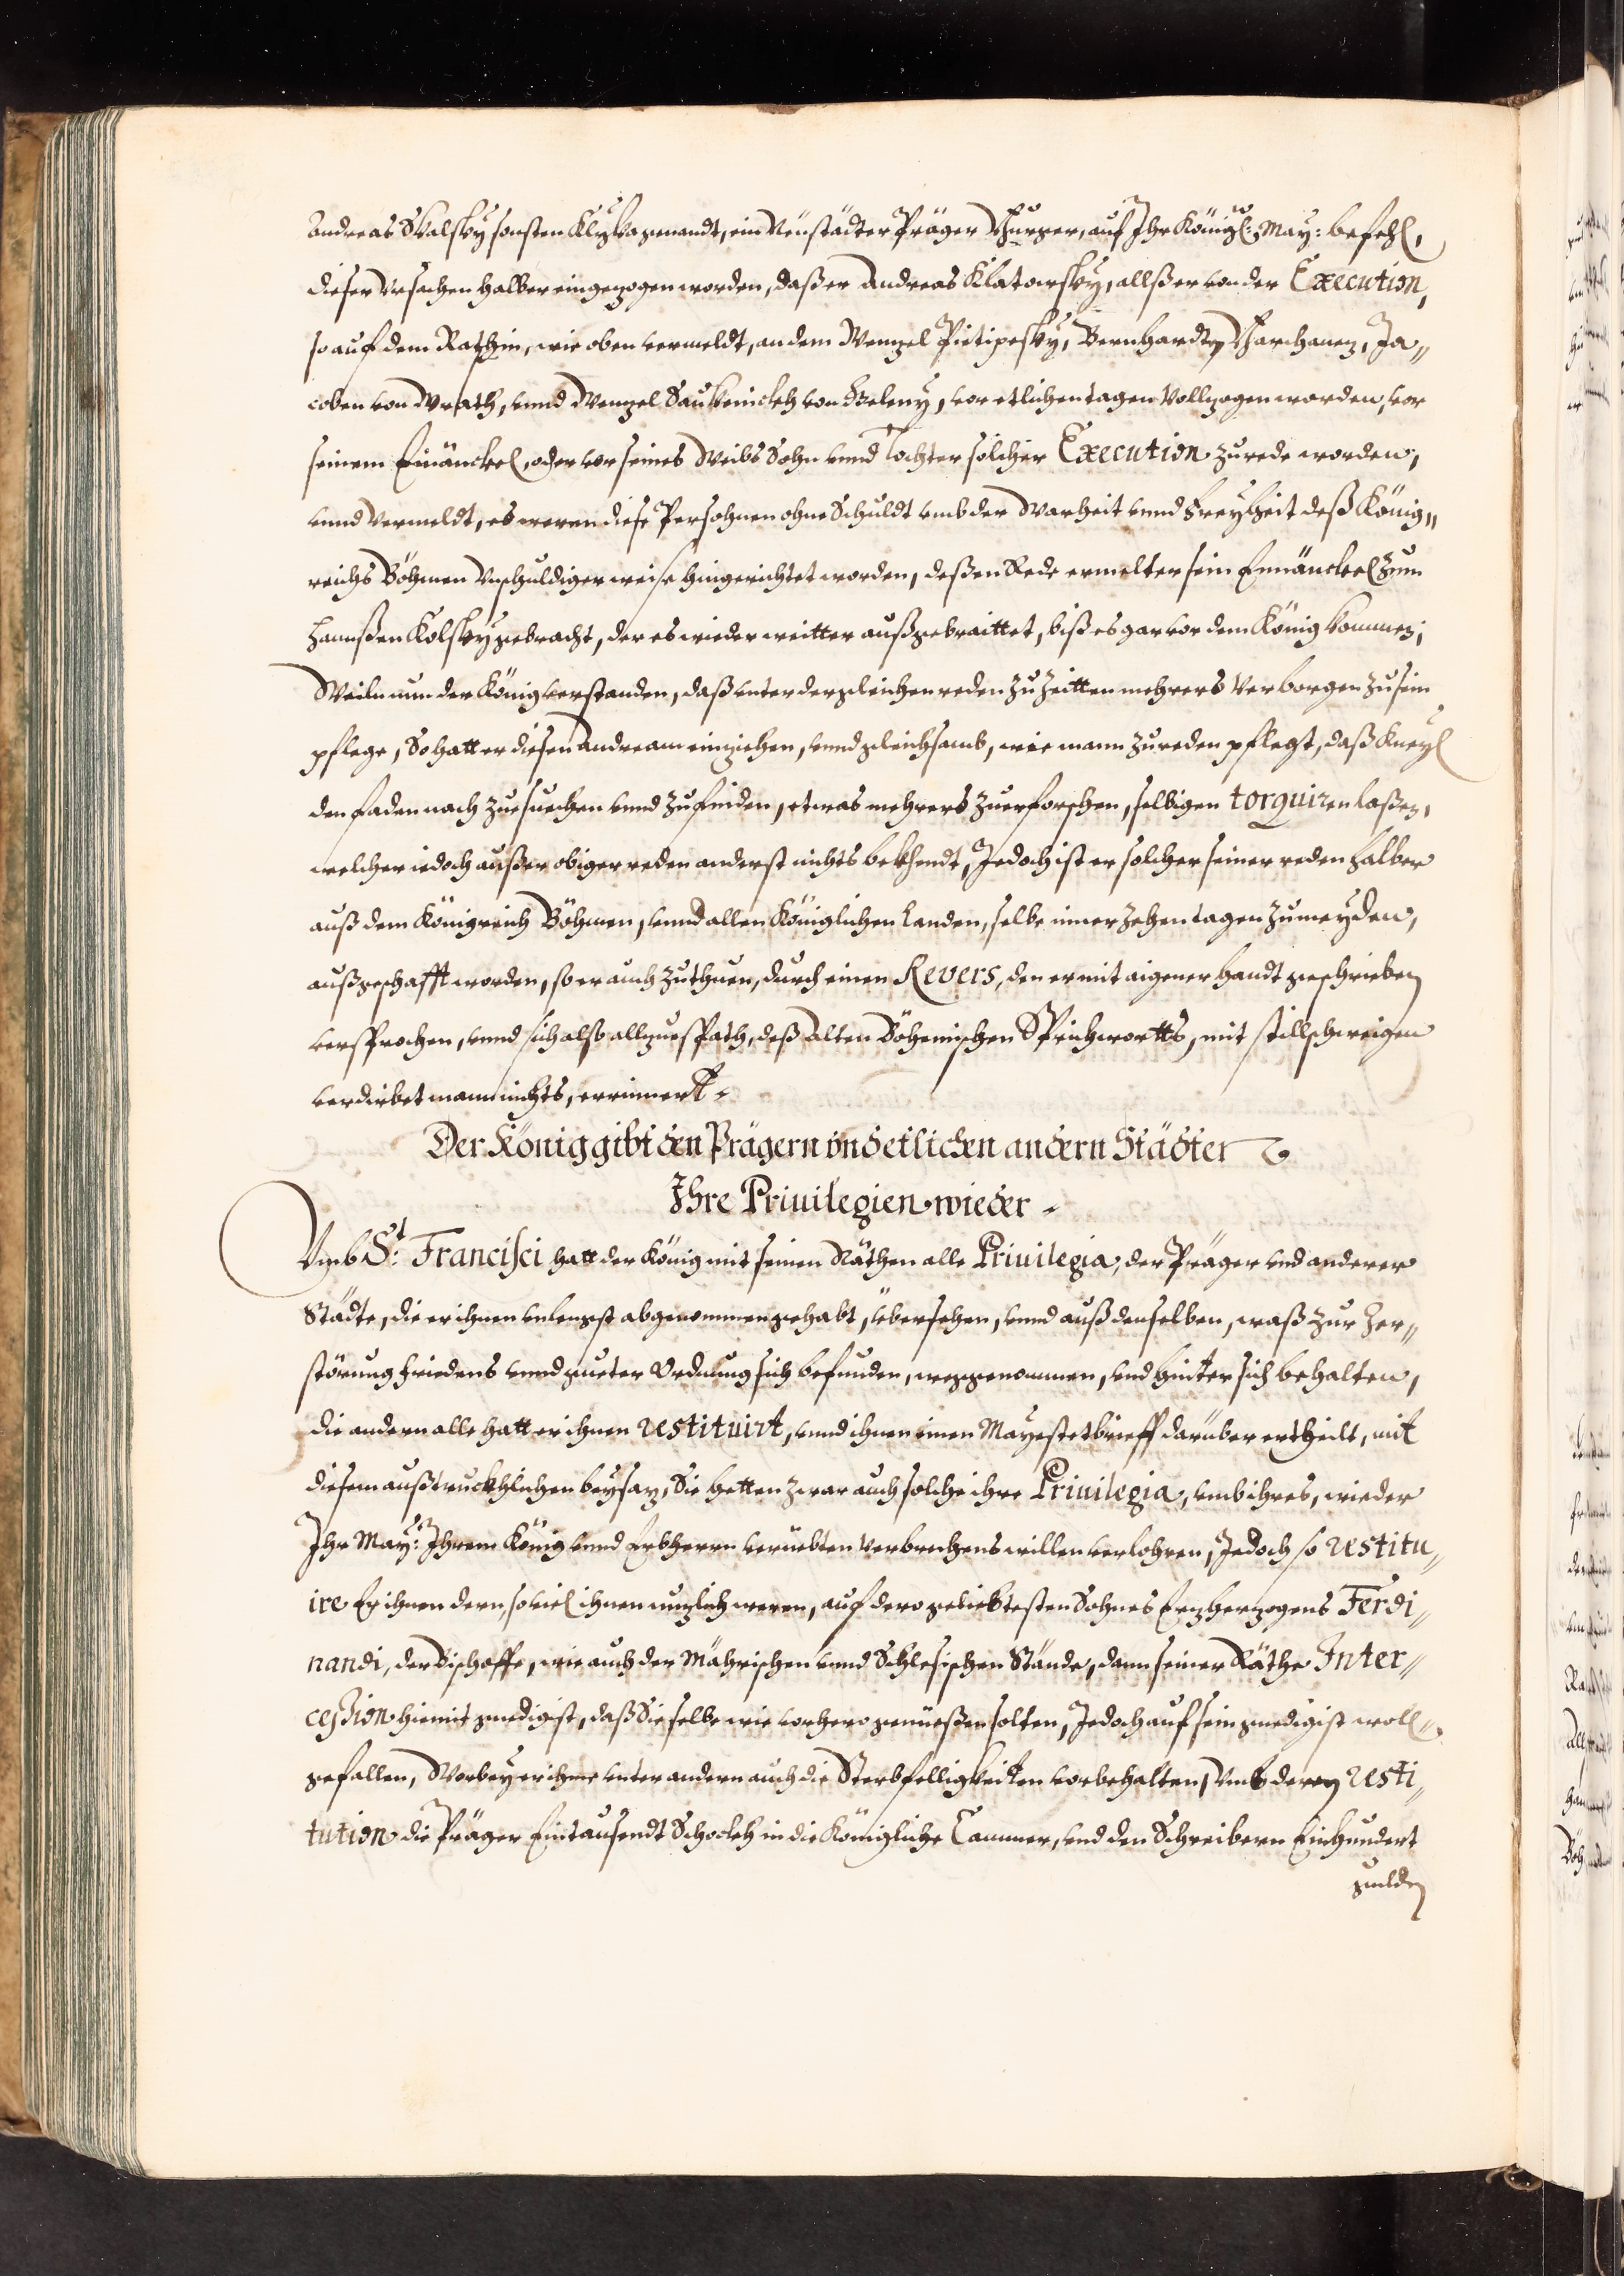 Andreas Skalsky sonsten Klyka genandt, ein Neüstädter Präger Burger, auf Ihr Königl: May: befehl,
dieser Vrsachen halber eingezogen worden, daß er Andreas Klatowsky, allß er von der Execution,
so auf dem Ratschin, wie oben vermeldt, an dem Wenzel Pietipesky, Bernhardten Barchanez, Ja„
coben von Wrath, vnnd Wenzel
 von Geleny, vor etlichen tagen Vollzogen worden, vor
seinem Einänckel, oder vor seines Weibs Sohn vnnd Tochter solcher Execution zu rede worden,
vnnd Vermeldt, es weren diese Persohnen ohne Schuldt vmb der Warheit vnnd Freyheit deß König„
reichs Böhmen Vnschuldiger weise hingerichtet worden, deßen Rede ermelter sein Einänckel zum
Hannßen Kolsky gebracht, der es wieder weitter außgebraittet, biß es gar vor dem König kommen;
Weiln nun der König verstanden, daß vnter dergleichen reden zu Zeitten mehrers Verborgen zu sein
pflege, So hatt er diesen Andream einziehen, vnnd gleichsamb, wie mann zu reden pflegt, daß Kneyl
den faden nach zue suechen vnnd zu finden, etwas mehrers zu erforschen, selbigen torquiren laßen,
welcher iedoch außer obiger reden anderst nichts bekhendt, Jedoch ist er solcher seiner reden halber
auß dem Königreich Böhmen, vnnd allen Königlichen Landen, selbe inner Zehen tagen zu meyden,
außgeschafft worden, so er auch zuthuen, durch einen Revers, den er mit aigener handt geschrieben
versprochen, vnnd sich also allzu späth, deß Alten Böhemischen Sprichwortts, mit stillschweigen
verdirbet mann nichts, errinnert.
Der König gibt den Prägern vnd etlichen andern Städten
Ihre Priuilegien wieder.
Vmb St: Francisci hatt der König mit seinen Räthen alle Priuilegia, der Präger vnd anderer
Städte, die er ihnen vnlengst abgenommen gehabt, übersehen, vnnd auß denselben, waß zur Zer„
störung friedens vnnd gueter Ordnung sich befunden, weggenommen, vnd hinter sich behalten,
die andern alle hatt er ihnen restituirt, vnnd ihnen einen Mayestetbrieff darüber ertheilt, mit
diesem außtruckhlichen beysaz, Sie hetten zwar auch solche ihre Priuilegia, vmb ihres, wieder
Ihr May: Ihrem König vnnd Erbherrn veruebten Verbrechens willen verlohren, Jedoch so restitu„
ire Er ihnen dern, so viel ihnen nuzlich weren, auf dero geliebtesten Sohnes Erzherzogens Ferdi„
nandi, der Bischoffe, wie auch der Mährischen vnnd Schlesischen Stände, dann seiner Räthe Inter„
cession hiemit gnedigist, daß Sie selbe wie vorhero genüeßen solten, Jedoch auf sein gnedigist woll„
gefallen, Worbey er ihme vnter andern auch die Sterbfelligkeiten vorbehalten, Vmb deren resti„
tution die Präger Eintausendt Schockh in die Königliche Cammer, vnd den Schreibern Einhundert
gulden